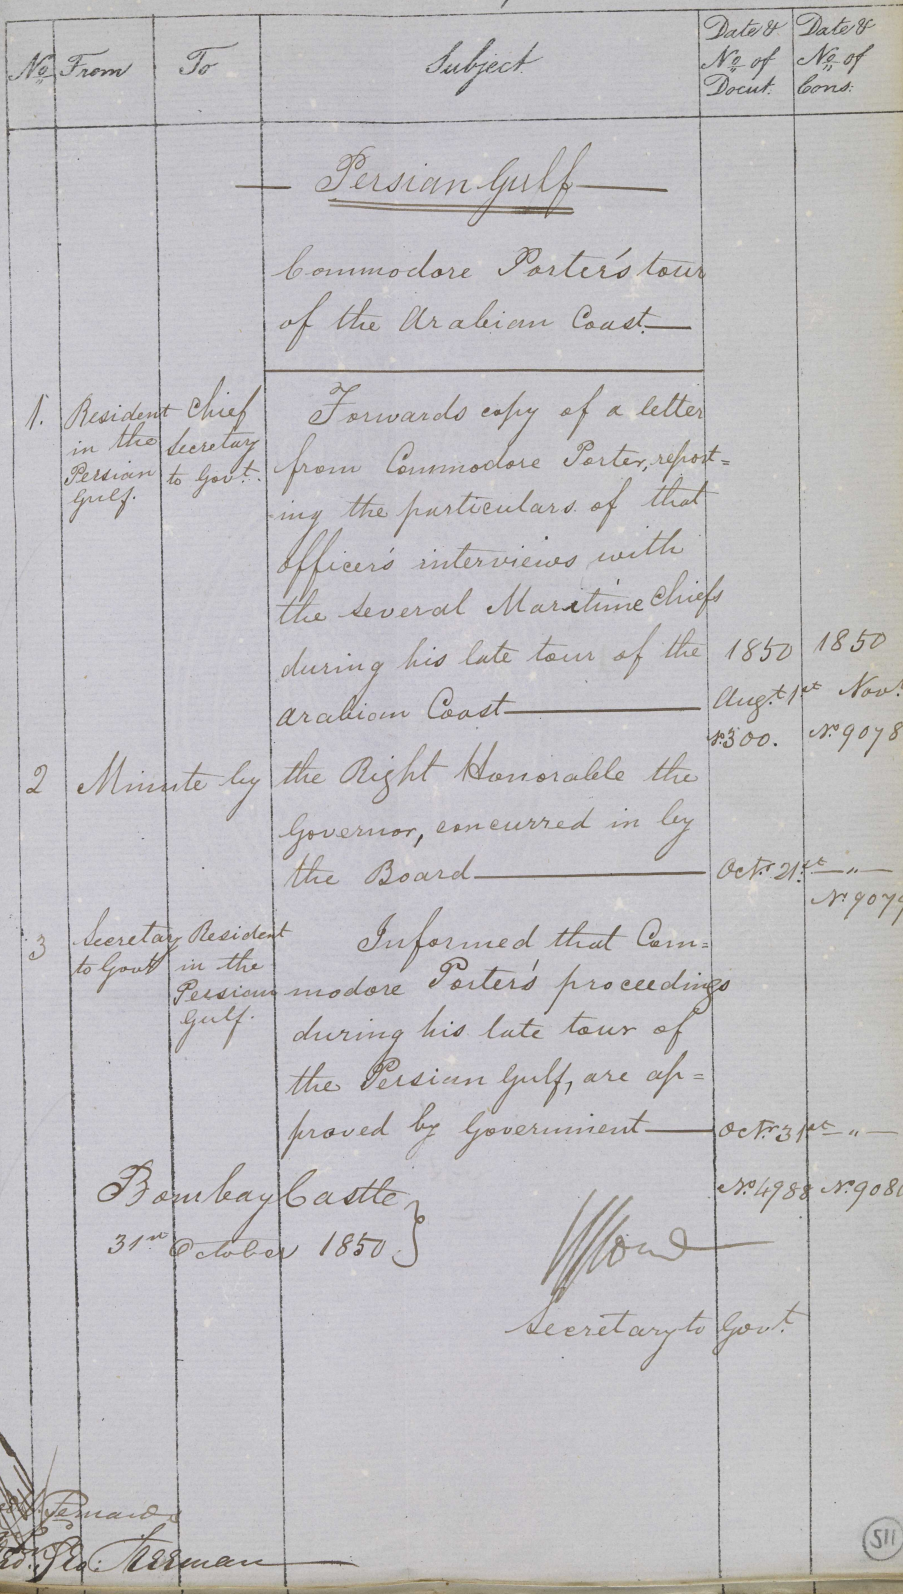 No From To Subject Date & No of Docut. Date & No of Cons:
Persian Gulf
Commodore Porter's tour
of the Arabian Coast
1. Resident in the Persian Gulf. Chief Secretary to Govt.
Forwards copy of a letter
from Commodore Porter, report=
ing the particulars of that
officer's interviews with
the several Maritime Chiefs
during his late tour of the 1850 1850
Arabian Coast Augt. 1st Novr.
No. 300. No. 9078
2 Minute by the Right Honorable the
Governor, concurred in by
the Board Octr. 21st — " —
No 9079
3 Secretary to Govt Resident in the Persian Gulf.
Informed that Com=
modore Porter's proceedings
during his late tour of
the Persian Gulf, are ap=
proved by Government Octr. 31st — " —
No. 4988 No. 9080
Bombay Castle
31st October 1850
Secretary to Govt.
511